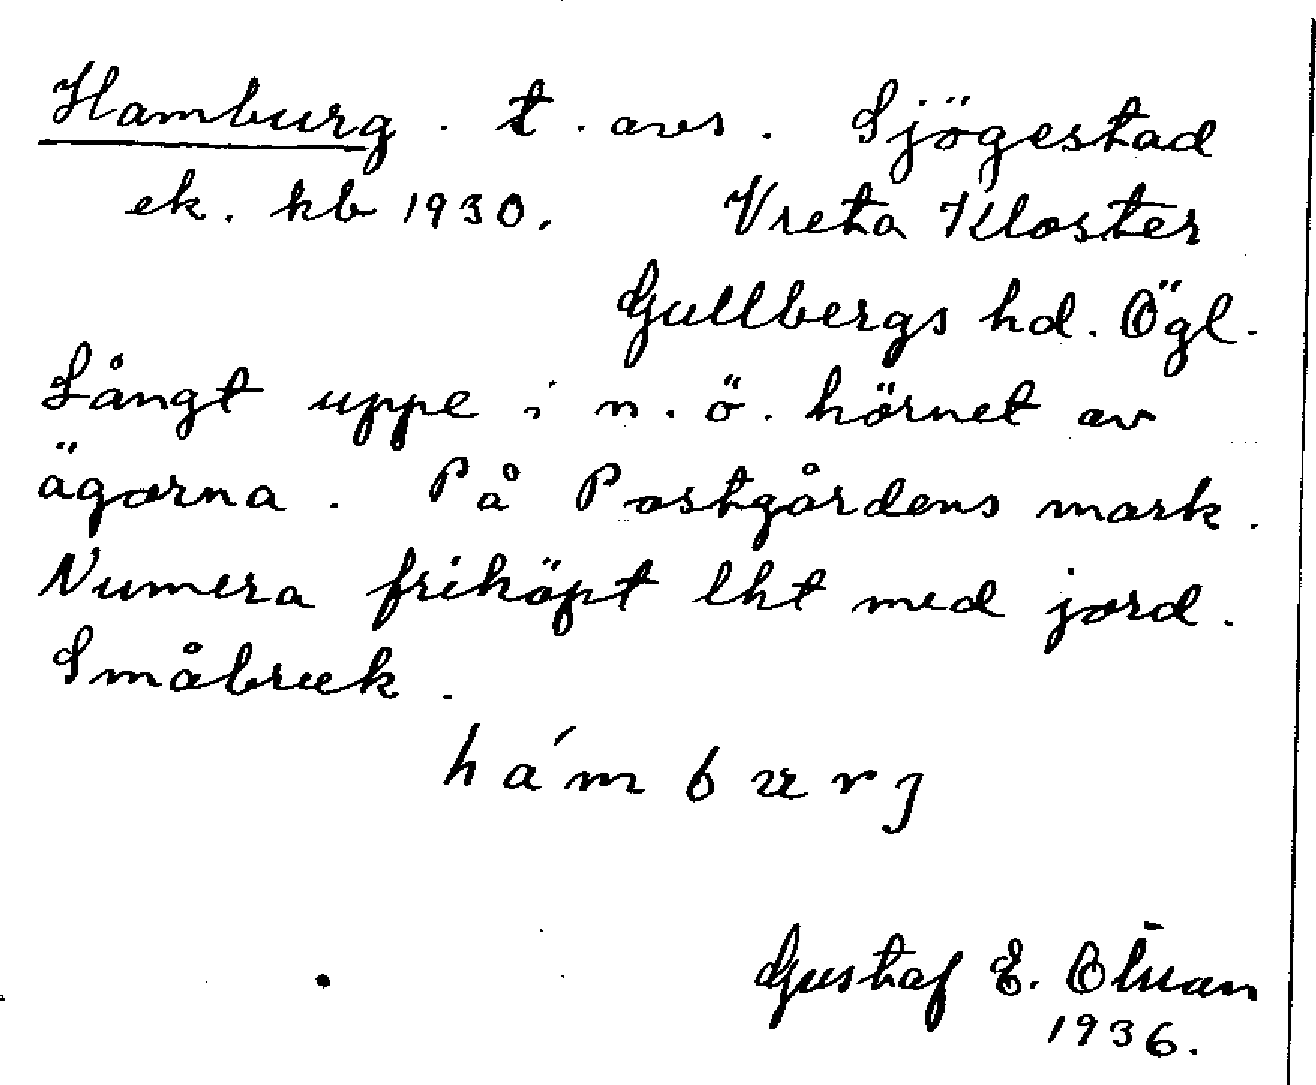 Hamburg. t. avs. Sjögestad
ek. kb 1930. Vreta Kloster
Gullbergs hd. Ögl.
Långt uppe i n. ö. hörnet av
ägorna. På Postgårdens mark.
Numera friköpt lht med jord.
Småbruk.
há́mburj
Gustaf E.
1936.